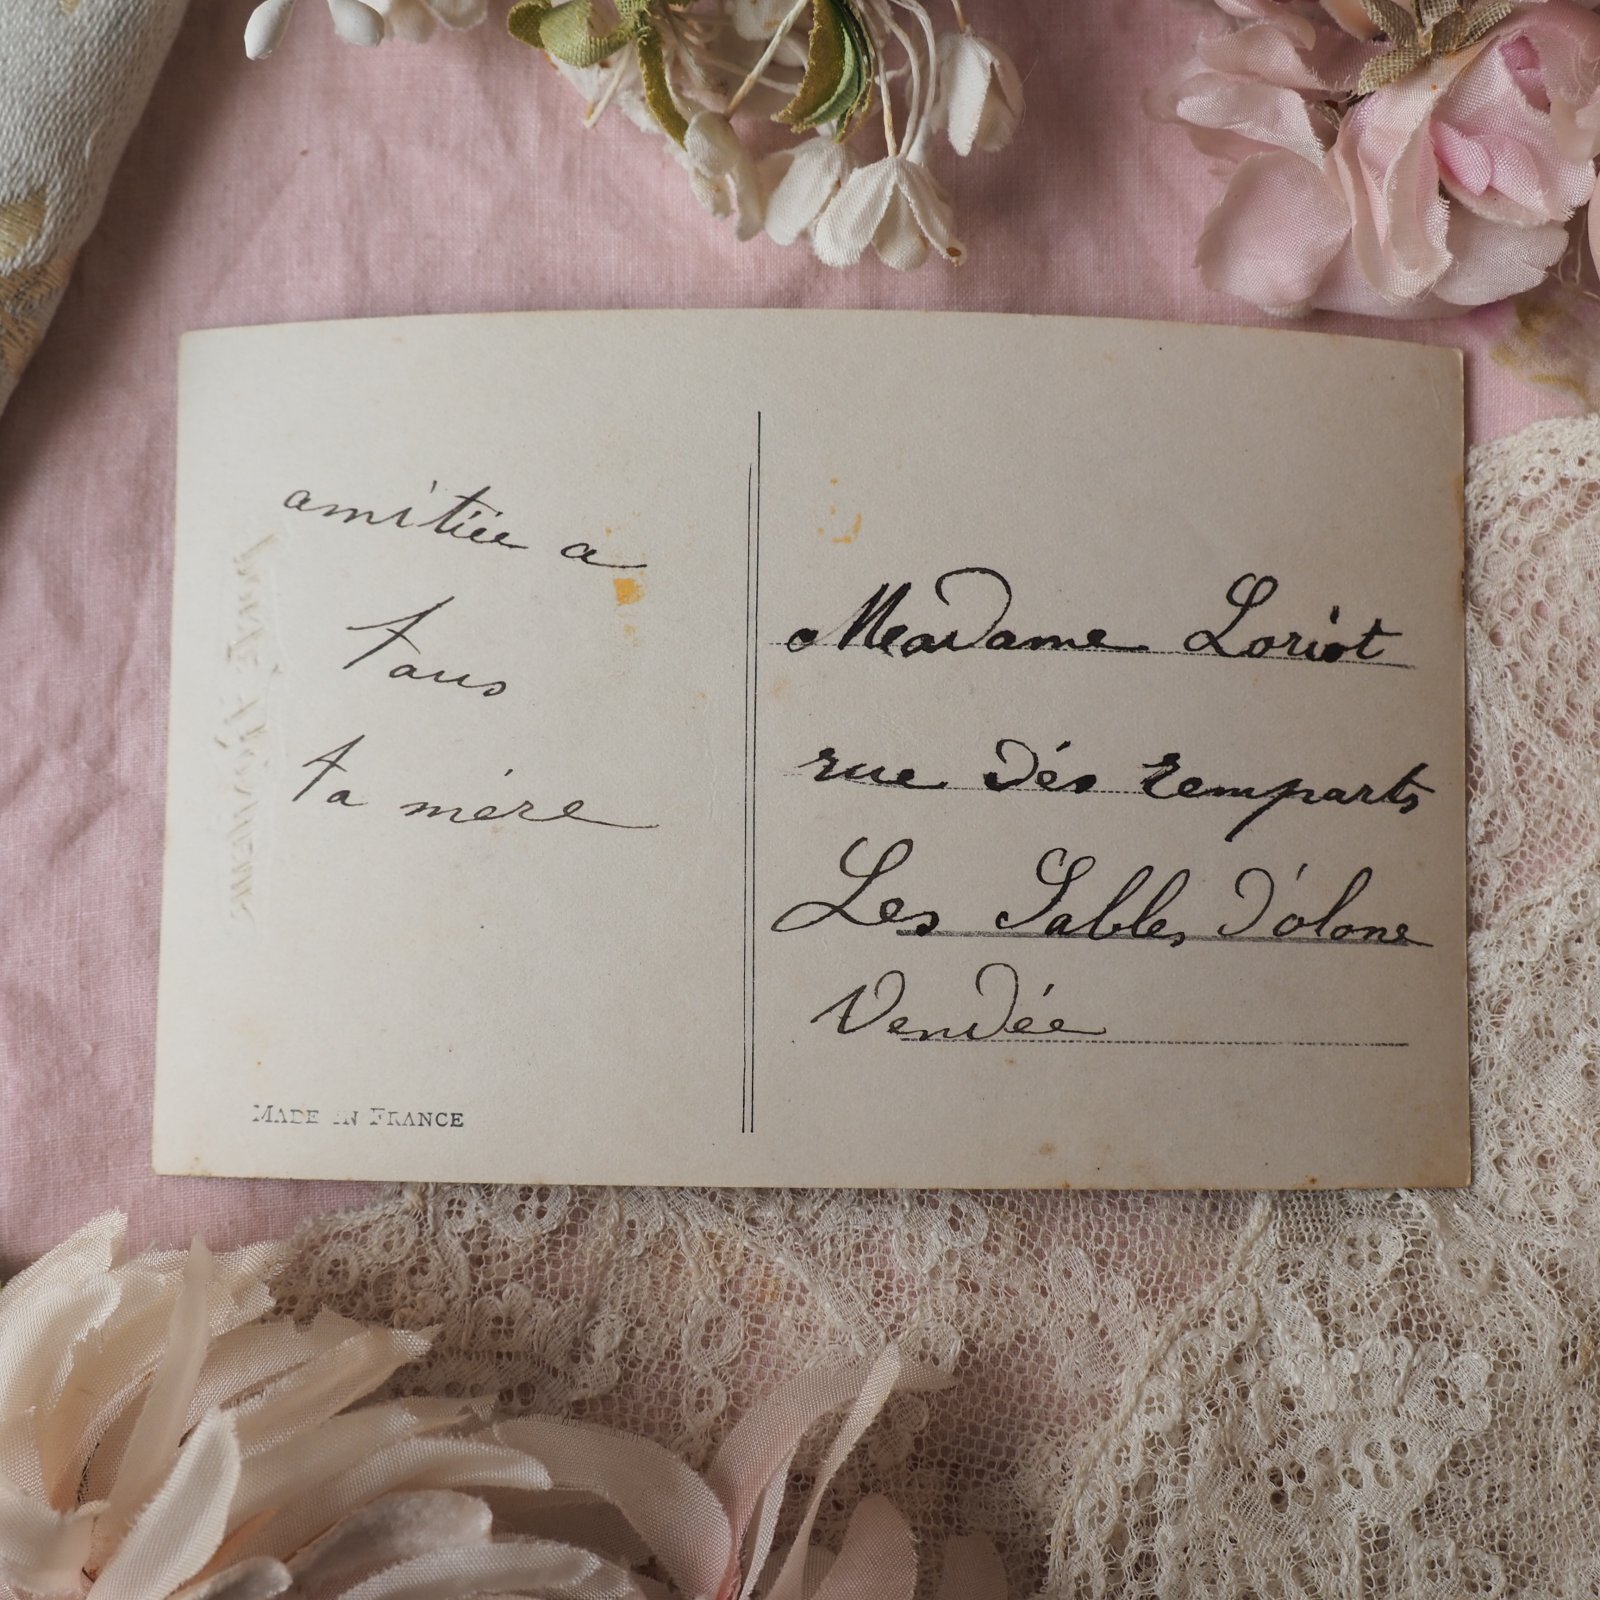 amitiée a
tous
ta mére
MADE IN FRANCE
Madame Loriot
rue dés remparts
Les Sables d'olone
Vendée